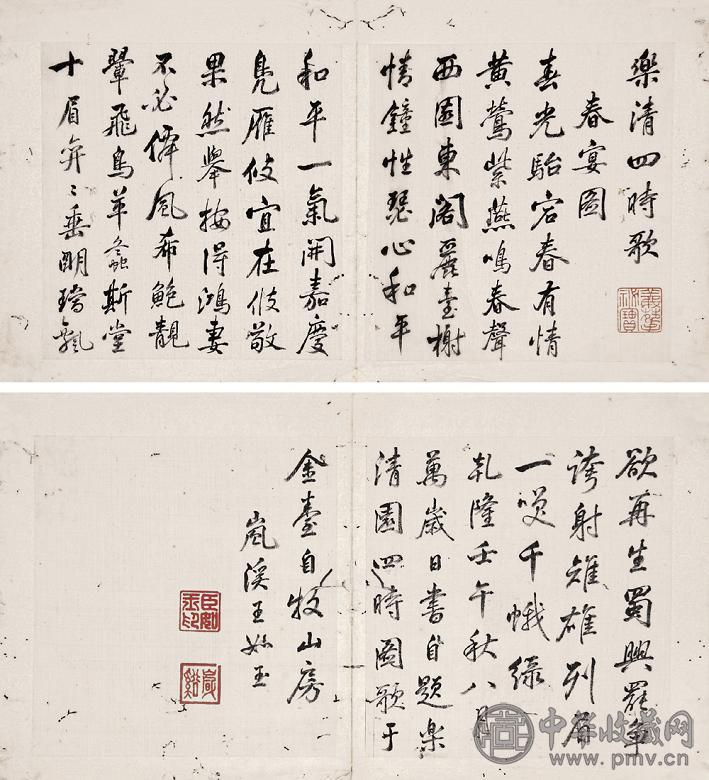 樂清四時歌
春宴圖
春光駘宕春有情
黄鶯紫燕鳴春聲
西園東閣麗臺榭
情鐘性瑟心和平
和平一氣開嘉慶
鳧雁攸宜在攸敬
果然舉按得鴻妻
不必風希鮑靚
翬飛鳥革螽斯堂
十眉弈〻垂明璫飄
欲再生蜀興羅
誇射雉雄列屏
一笑千峨綠
乾隆壬午秋八月
萬歲日書自題樂
清園四時圖歌于
金臺自牧山房
嵐溪王如玉
中华收藏网
www.pmv.cn